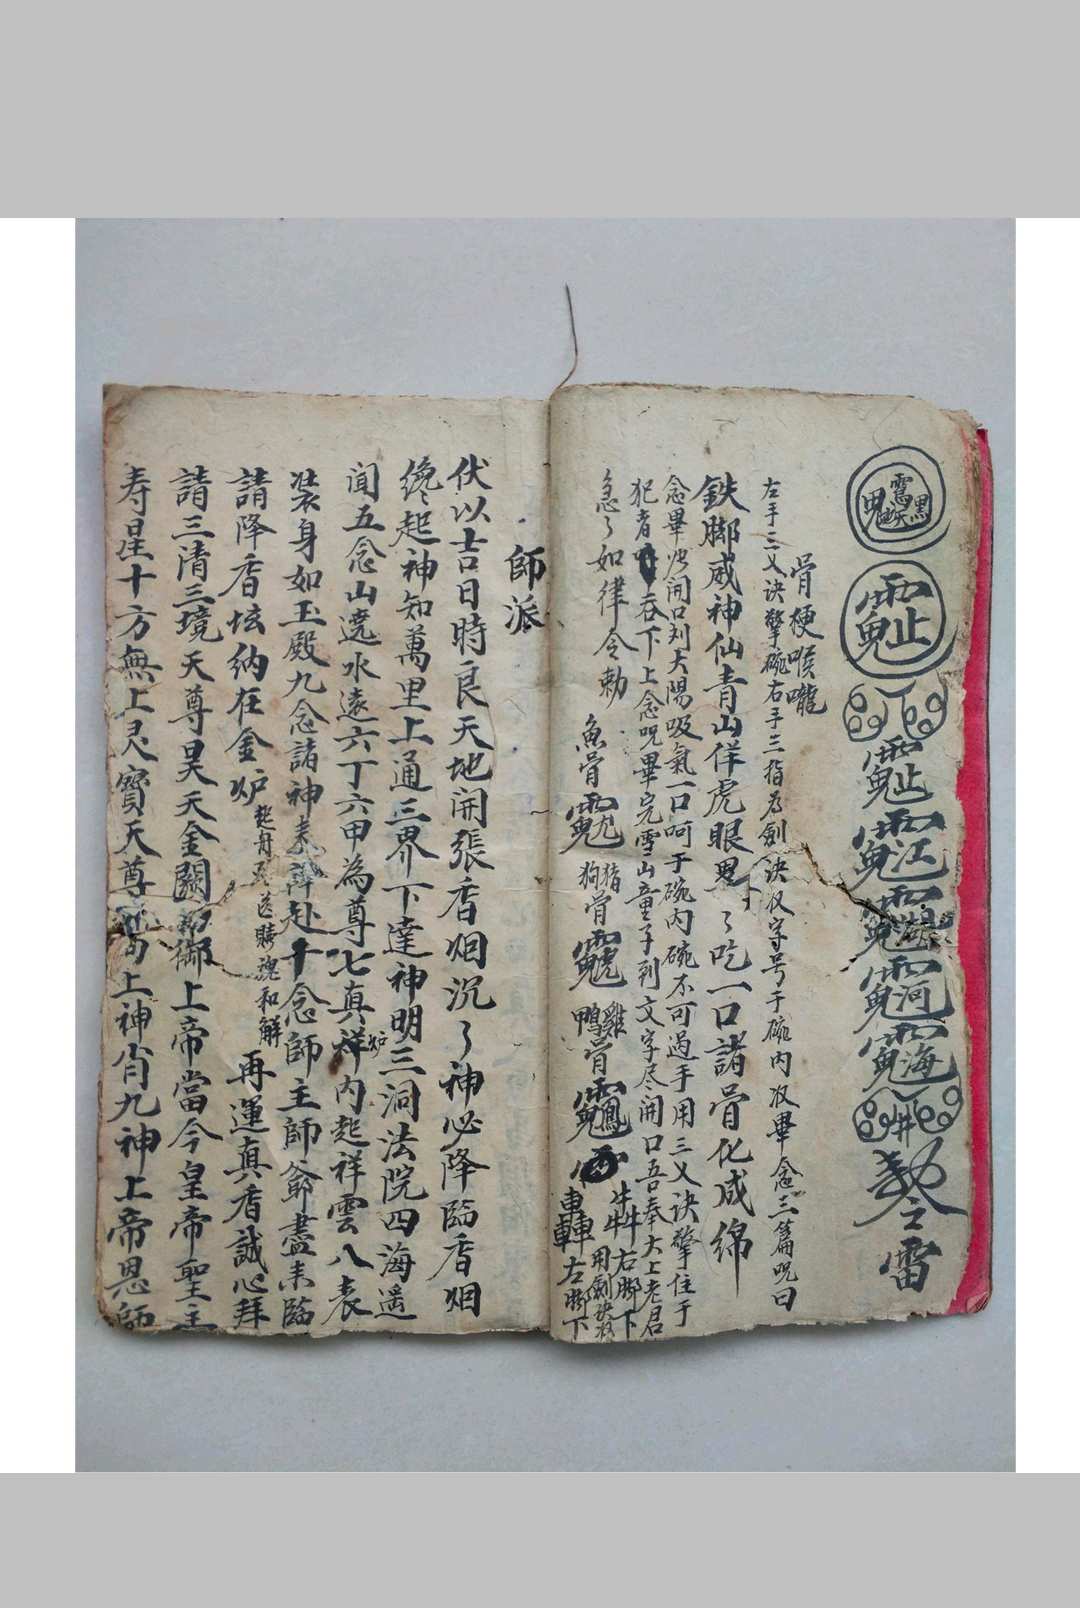 雷
骨梗喉嚨
左手三义诀擎碗右手三指為劍诀汉字号于碗内汉畢念三篇咒曰
鉄脚威神仙青山佯虎眼了吃一口諸骨化成綿
念畢開口対太陽吸氣一口呵于碗内碗不可過手用三义诀擎住于
犯者吞下上念咒畢完雪山童子到文字尽開口吾奉太上老君
急了如律令勅
魚骨
猪狗骨
雞鴨骨
犇犇右脚下
轟轟左脚下
師派
伏以吉日時良天地開張香烟沉了神必降臨香烟
纔起神知萬里上通三界下達神明三洞法院四海遥
闻五念山遶水遠六丁六甲為尊七真祥炉内起祥雲八表
装身如玉殿九念諸神来赴十念師主師爺盡来臨
請降香坛納在金炉 贖魂和解 再運真香誠心拜
請三清三境天尊昊天金闕御上帝當今皇帝聖主
寿星十方無上灵寶天尊上神肖九神上帝恩師